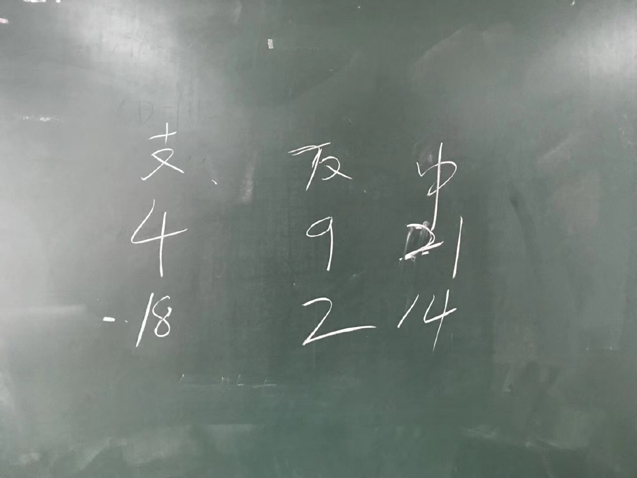 支 反 中
4 9 21
18 2 14